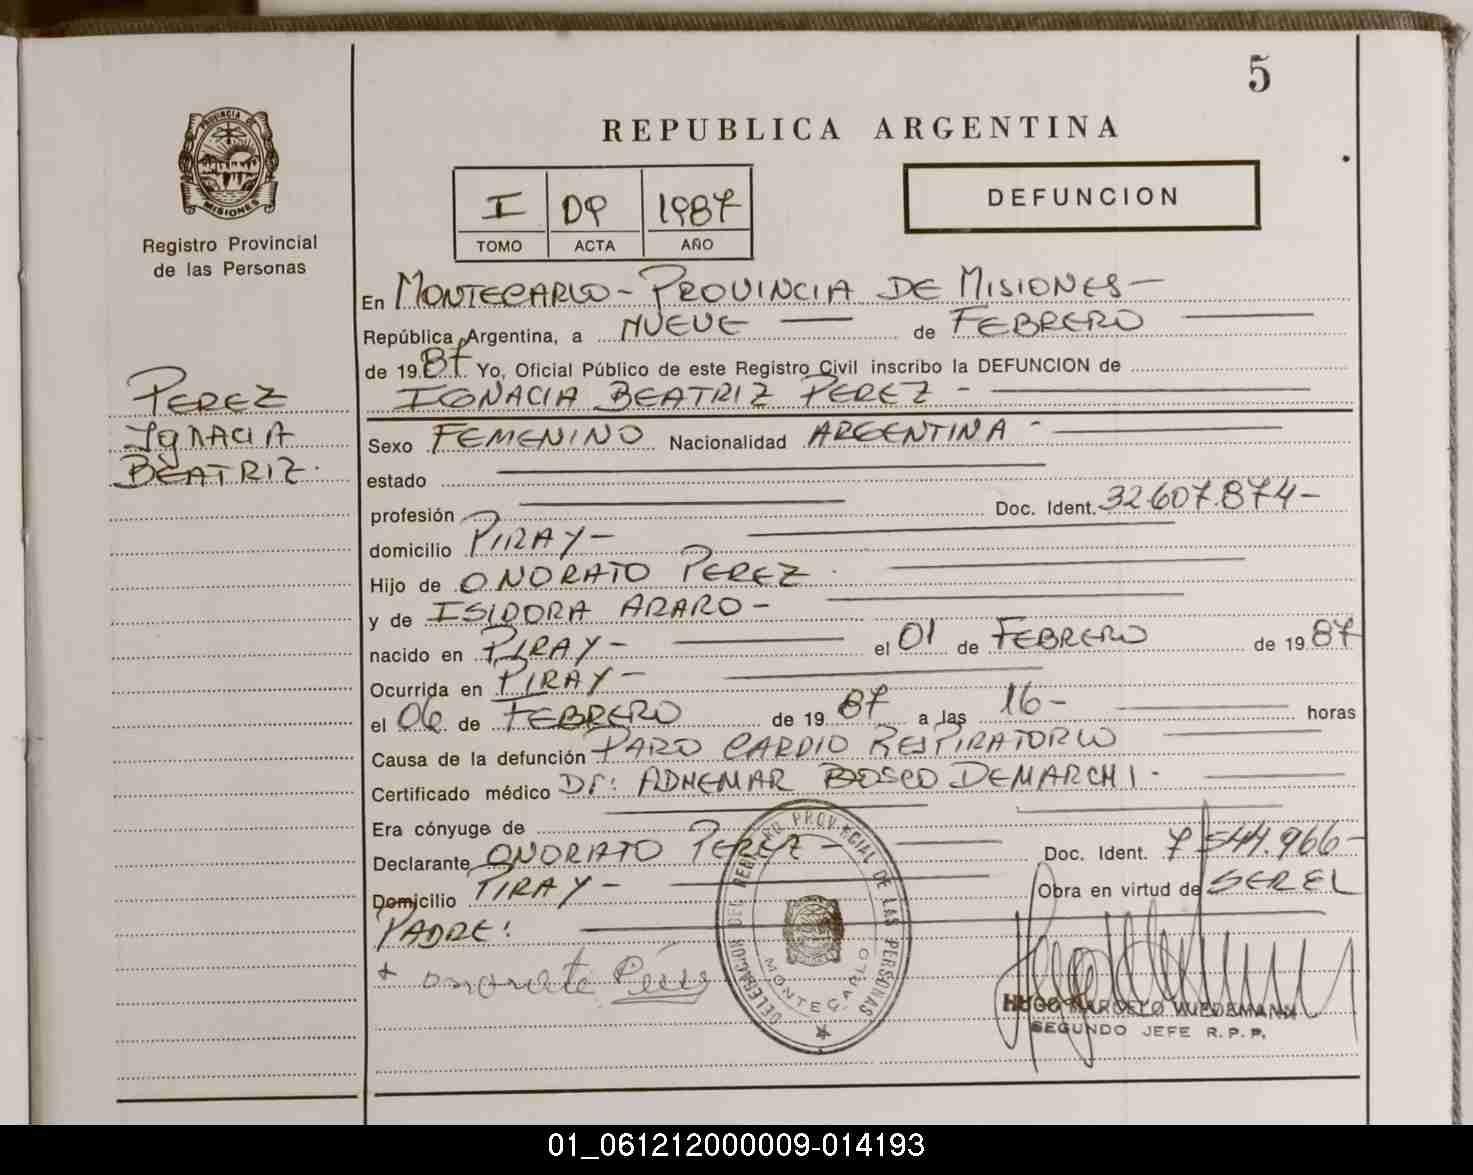 5
REPUBLICA ARGENTINA
PROVINCIA DE
MISIONES
Registro Provincial
de las Personas
I 09 1987
TOMO ACTA AÑO
DEFUNCION
En MONTECARLO - PROVINCIA DE MISIONES -
República Argentina, a NUEVE de FEBRERO
de 19 87 Yo, Oficial Público de este Registro Civil inscribo la DEFUNCION de
IGNACIA BEATRIZ PEREZ -
PEREZ
IgNACIA
BEATRIZ.
Sexo FEMENINO Nacionalidad ARGENTINA -
estado
profesión Doc. Ident. 32.607.874-
domicilio PIRAY -
Hijo de ONORATO PEREZ
y de ISIDORA ARARO -
nacido en PIRAY - el 01 de FEBRERO de 19 87
Ocurrida en PIRAY -
el 06 de FEBRERO de 19 87 a las 16 - horas
Causa de la defunción PARO CARDIO RESPIRATORIO
Certificado médico Dr: ADHEMAR BOSCO DEMARCHI -
Era cónyuge de
Declarante ONORATO PEREZ - Doc. Ident. 7.544.966-
Domicilio PIRAY - Obra en virtud de SER EL
PADRE:
+ onorato Perez
DELEGACION DEL REGISTRO PROVINCIAL DE LAS PERSONAS
MONTECARLO
HUGO MARCELO WUEDEMANN
SEGUNDO JEFE R.P.P.
01_061212000009-014193